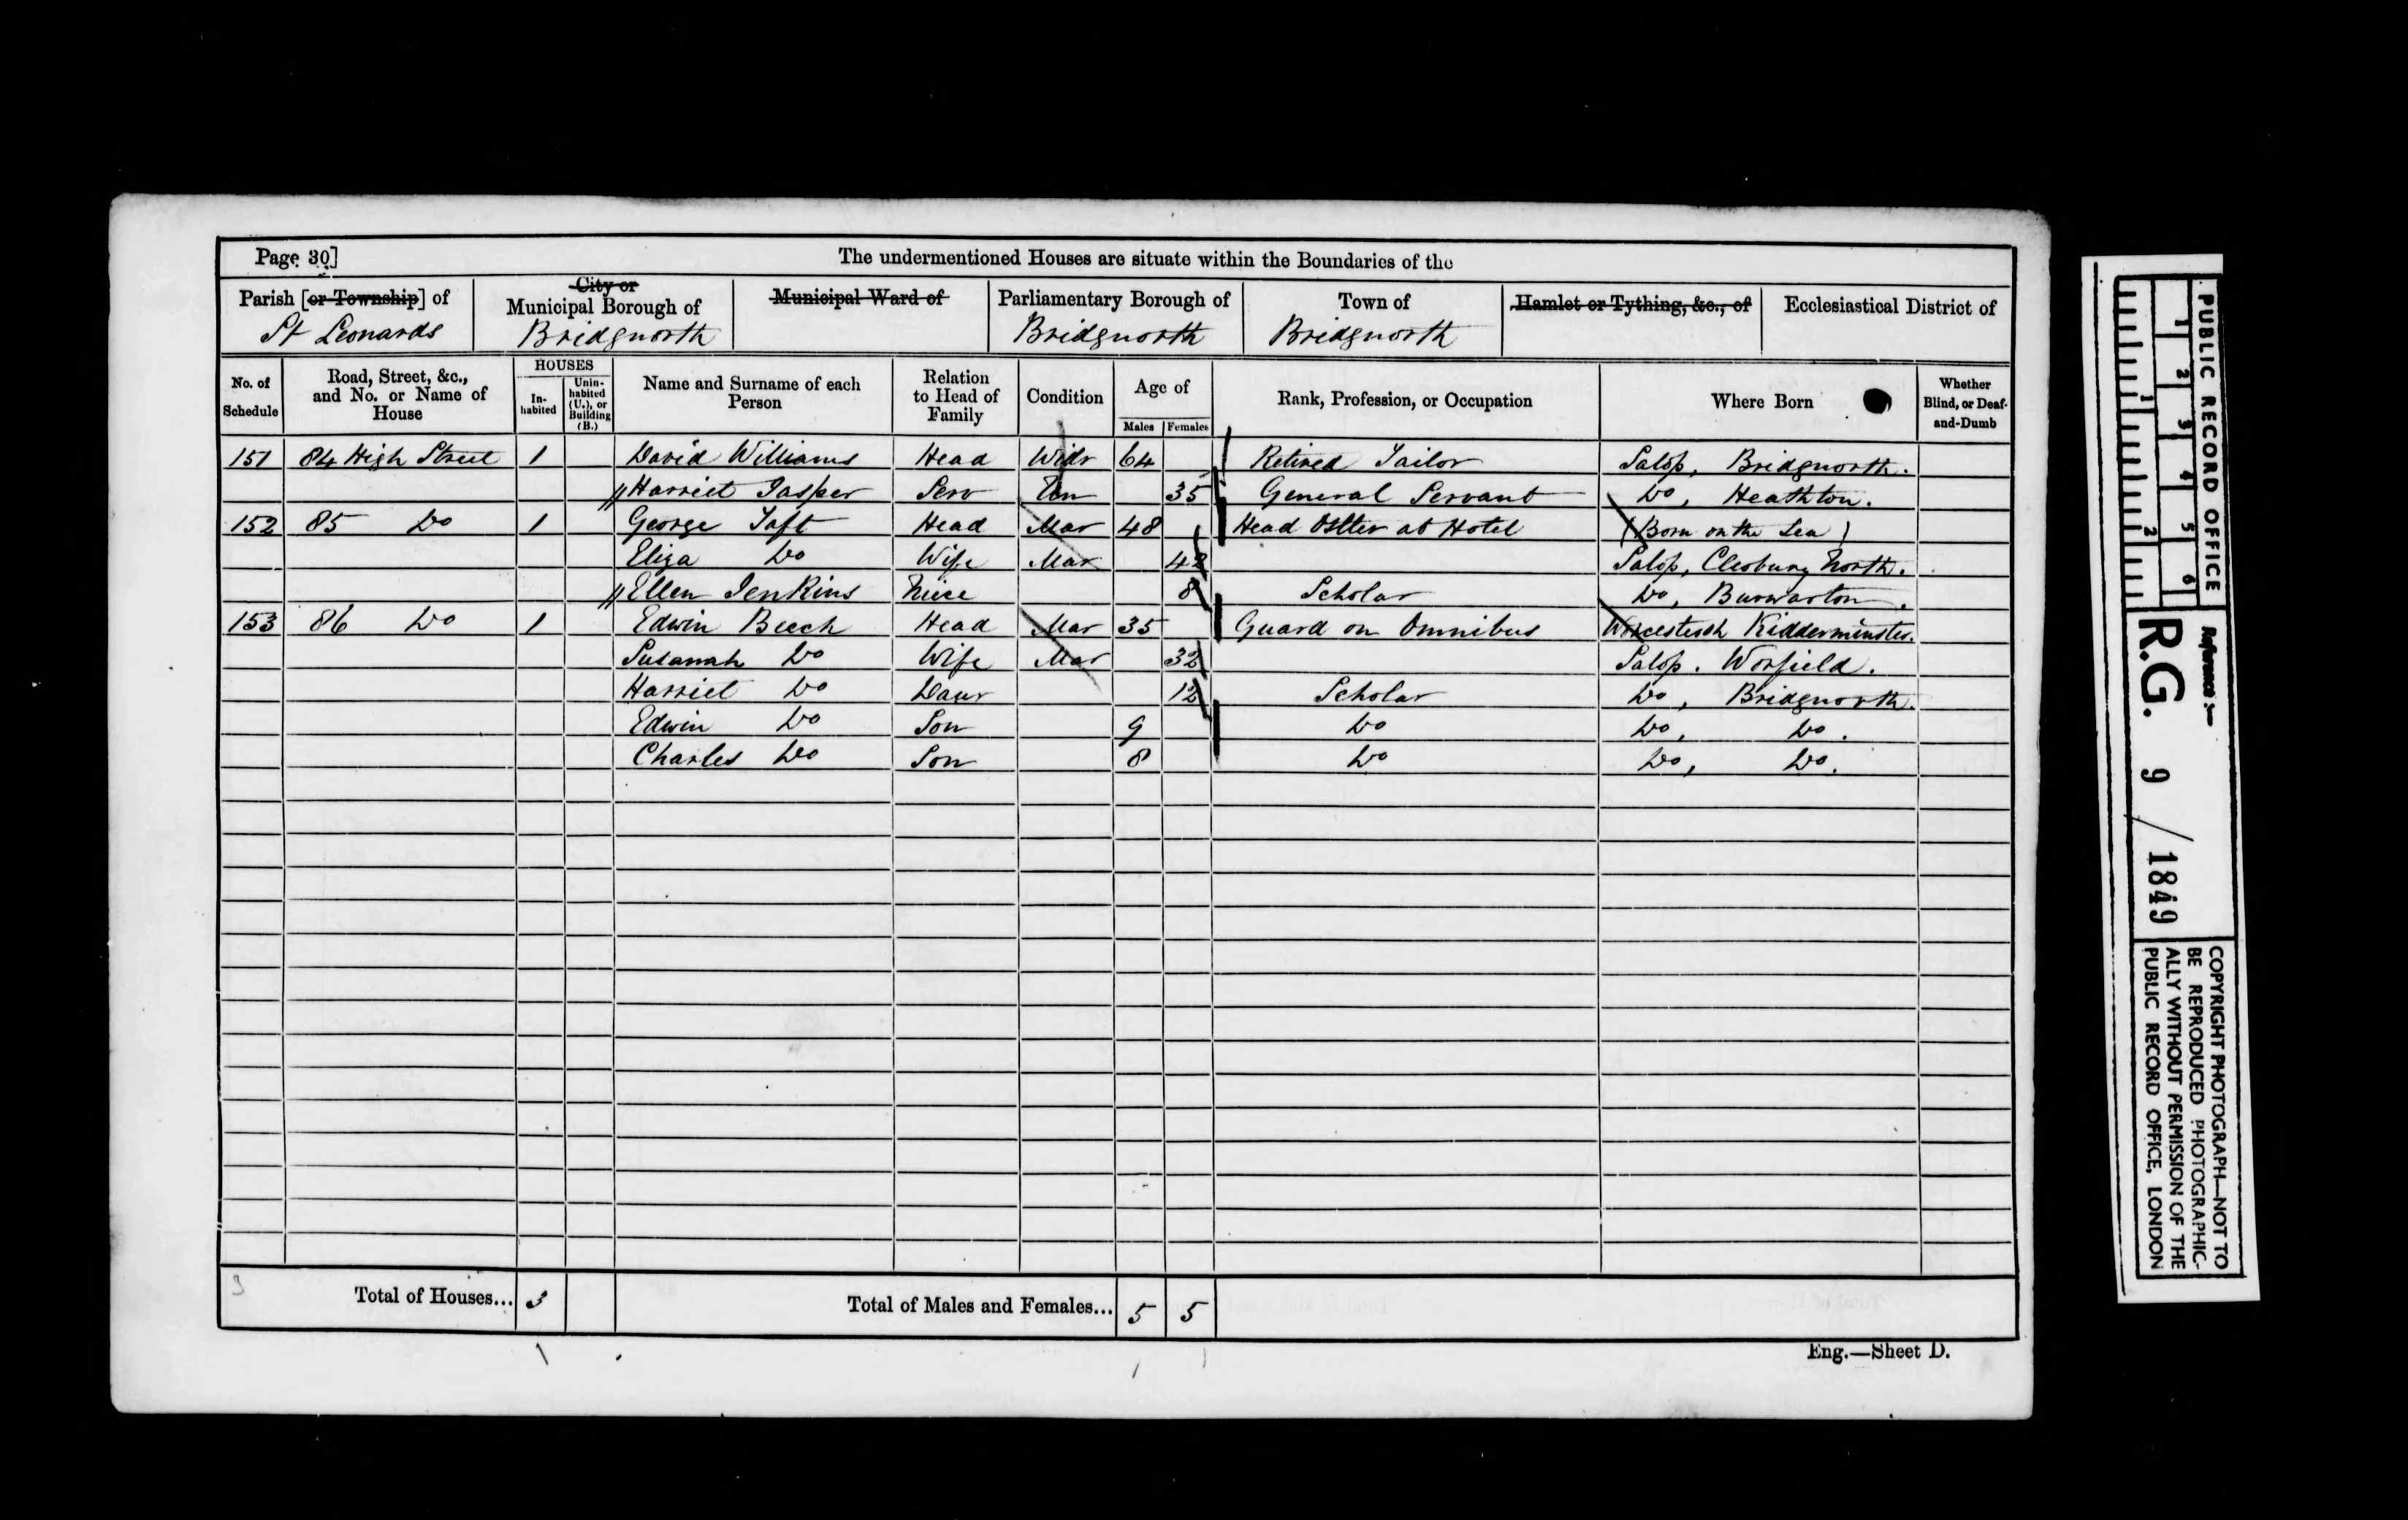 Page 30] The undermentioned Houses are situate within the Boundaries of the
Parish [or Township] of City or Municipal Borough of Municipal Ward of Parliamentary Borough of Town of Hamlet or Tything, &c., of Ecclesiastical District of
St Leonards Bridgnorth Bridgnorth Bridgnorth
No. of Schedule Road, Street, &c., and No. or Name of House HOUSES Inhabited Uninhabited (U.), or Building (B.) Name and Surname of each Person Relation to Head of Family Condition Age of Males Females Rank, Profession, or Occupation Where Born Whether Blind, or Deaf-and-Dumb
151 84 High Street 1 David Williams Head Widr 64 Retired Tailor Salop, Bridgnorth.
// Harriet Jasper Serv Un 35 General Servant Do, Heathton.
152 85 Do 1 George Taft Head Mar 48 Head Ostler at Hotel (Born on the Sea)
Eliza Do Wife Mar 42 Salop, Cleobury North.
// Ellen Jenkins Niece 8 Scholar Do, Burwarton.
153 86 Do 1 Edwin Beech Head Mar 35 Guard on Omnibus Worcestersh Kidderminster.
Susanah Do Wife Mar 32 Salop. Worfield.
Harriet Do Daur 12 Scholar Do, Bridgnorth.
Edwin Do Son 9 Do Do, Do.
Charles Do Son 8 Do Do, Do.
Total of Houses... 3 Total of Males and Females... 5 5
Eng.—Sheet D.
PUBLIC RECORD OFFICE
1 2 3 4 5 6
1 2
Reference:—
R.G. 9 / 1849
COPYRIGHT PHOTOGRAPH—NOT TO
BE REPRODUCED PHOTOGRAPHIC-
ALLY WITHOUT PERMISSION OF THE
PUBLIC RECORD OFFICE, LONDON